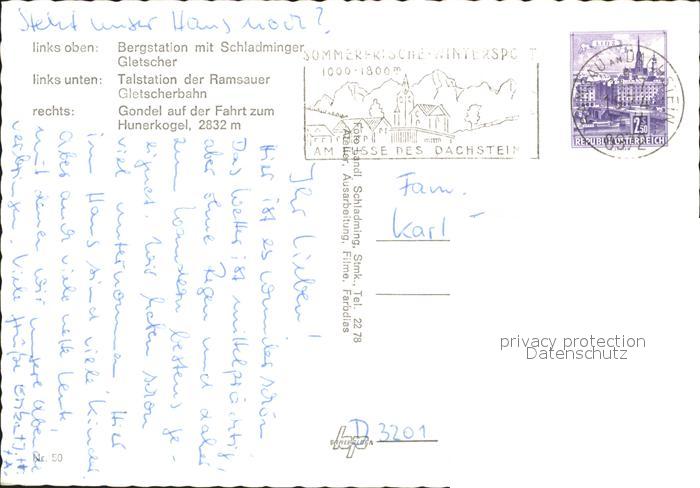 Steht unser Haus noch?
links oben: Bergstation mit Schladminger
Gletscher
links unten: Talstation der Ramsauer
Gletscherbahn
rechts: Gondel auf der Fahrt zum
Hunerkogel, 2832 m
SOMMERFRISCHE-WINTERSPORT
1000-1800m
AM FUSSE DES DACHSTEIN
AM DACHSTEIN
LINZ
2.50
REPUBLIK ÖSTERREICH
Foto Jandl, Schladming, Stmk., Tel. 22 78
Atelier, Ausarbeitung, Filme, Farbdias
Ihr Lieben!
Hier ist es wunderschön
Das Wetter ist mittelprächtig,
aber ohne Regen und daher
zum Wandern bestens ge-
eignet. Wir haben schon
viel unternommen. Hier
im Haus sind viele Kinder
aber auch viele nette Leute,
mit denen wir unsere Abende
verbringen. Viele Grüße
Fam.
Karl
privacy protection
Datenschutz
D 3201
Nr. 50